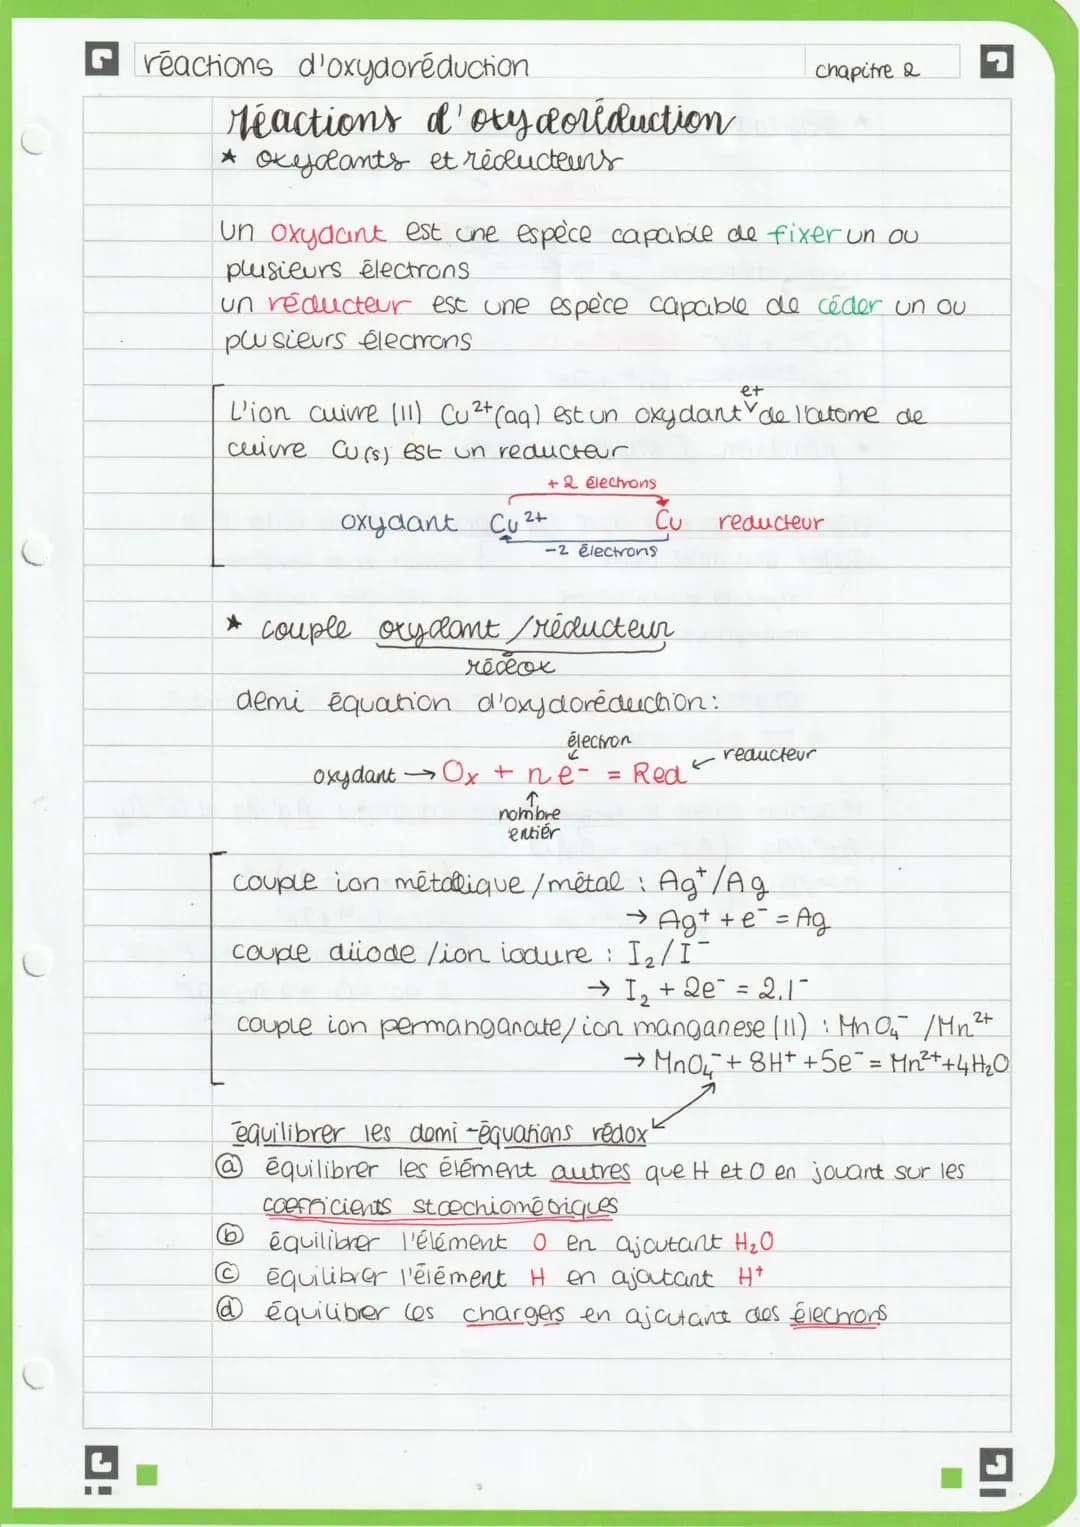 réactions d'oxydoréduction
chapitre 2
réactions d'oxydoréduction
* oxydants et réducteurs
un oxydant est une espèce capable de fixer un ou
plusieurs électrons
un réducteur est une espèce capable de céder un ou
plusieurs élecrrons
et
L'ion cuivre (II) Cu²⁺(aq) est un oxydant ∨ de l'atome de
cuivre Cu(s) est un reducteur
+2 électrons
oxydant Cu²⁺ Cu reducteur
-2 électrons
* couple oxydant /réducteur
rédox
demi équation d'oxydoréduction:
électron
reducteur
oxydant → Ox + n e⁻ = Red
nombre
entiér
couple ion métallique /métal : Ag⁺/Ag
→ Ag⁺ + e⁻ = Ag
couple diiode /ion iodure : I₂/I⁻
→ I₂ + 2e⁻ = 2.I⁻
couple ion permanganate/ion manganese (II) : MnO₄⁻ /Mn²⁺
→ MnO₄⁻ + 8H⁺ + 5e⁻ = Mn²⁺ + 4H₂O
équilibrer les demi-équations rédox
ⓐ équilibrer les élément autres que H et O en jouant sur les
coefficients stœchiométriques
ⓑ équilibrer l'élément O en ajoutant H₂O
ⓒ équilibrer l'élément H en ajoutant H⁺
ⓓ équilibrer les chargers en ajoutant des électrons